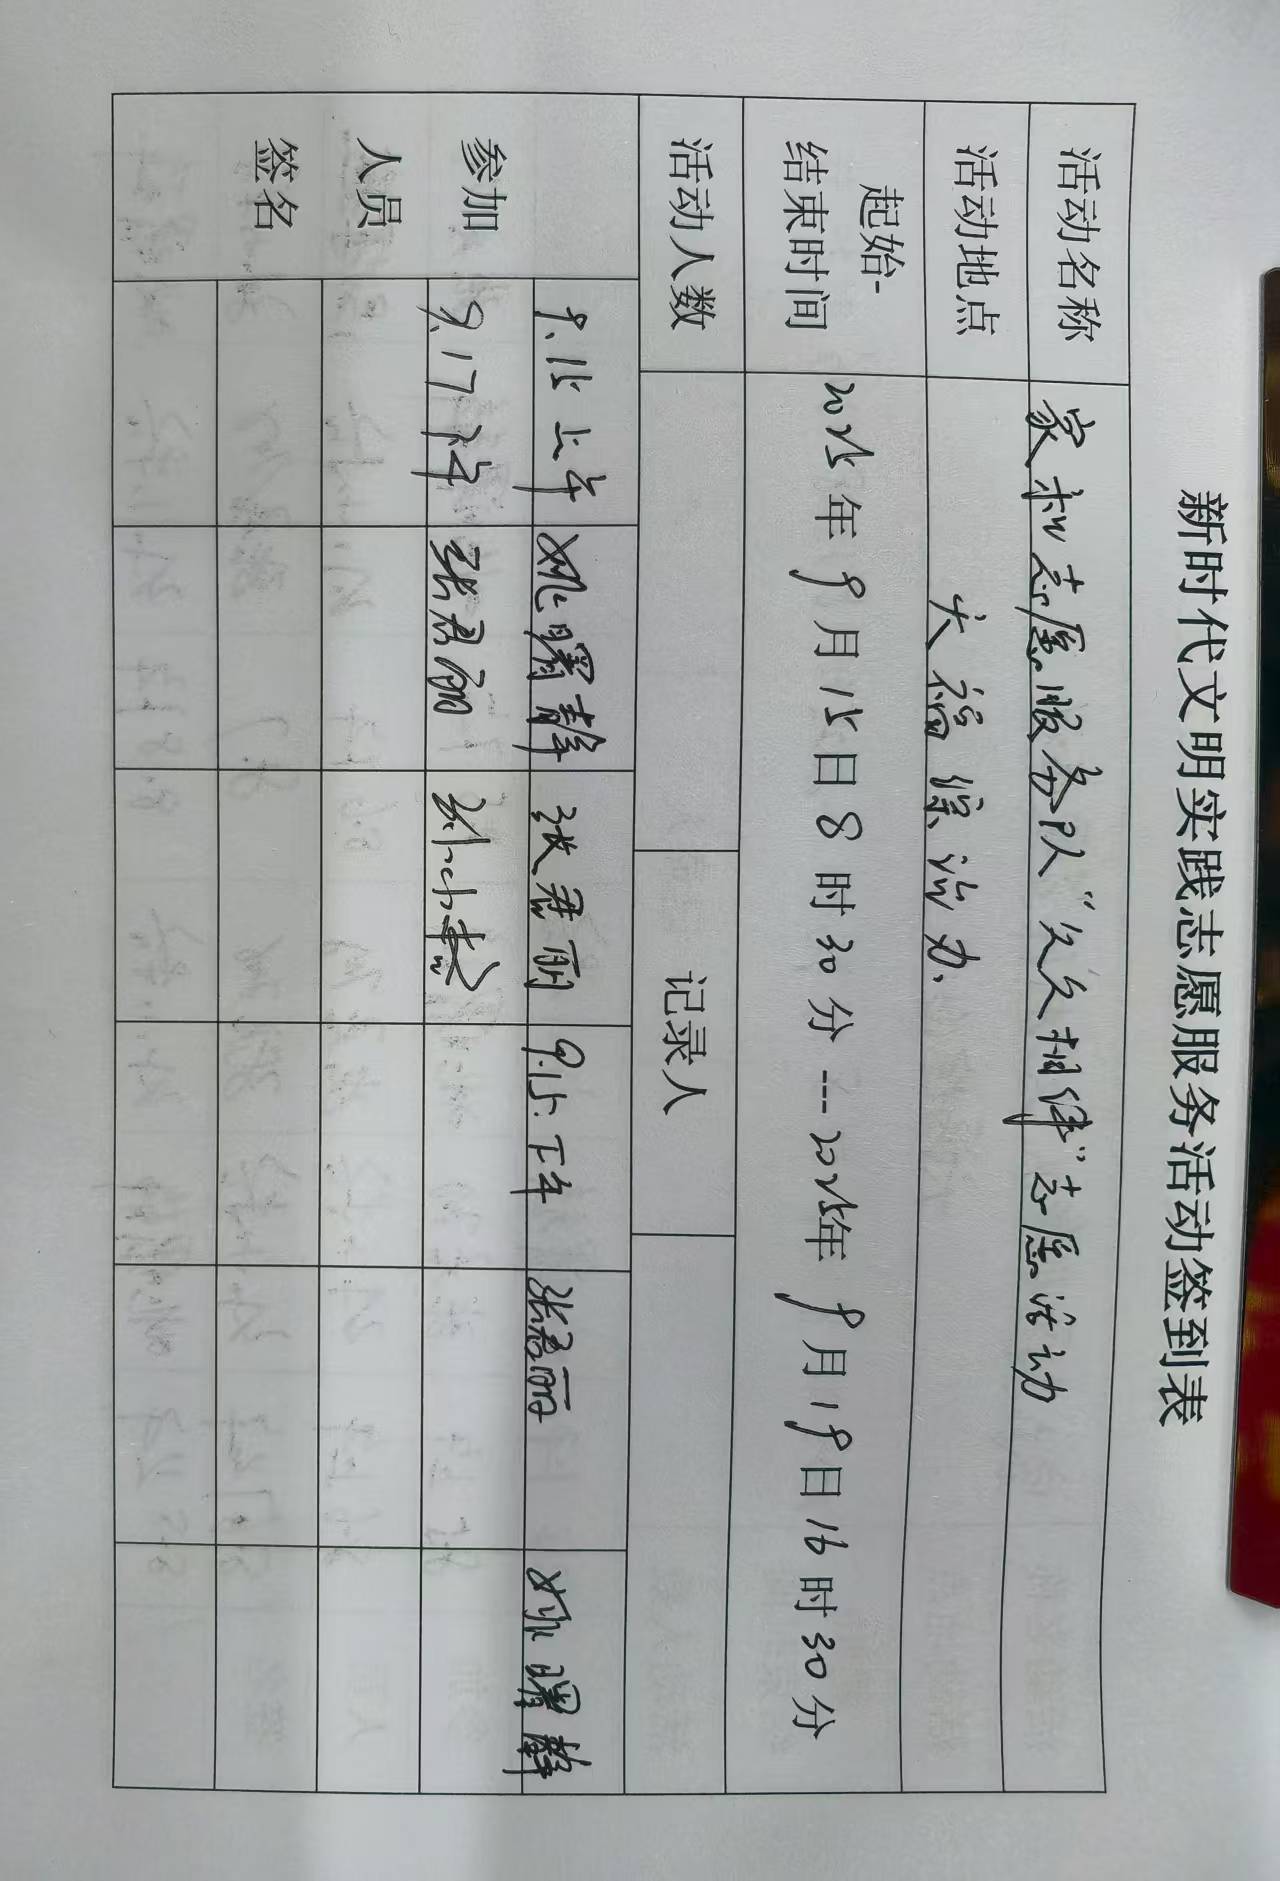 新时代文明实践志愿服务活动签到表
活动名称 家和志愿服务队“久久相伴”志愿活动
活动地点 大福综治办
起始-
结束时间 2025年9月15日8时30分---2025年9月19日16时30分
活动人数 记录人
参加
人员
签名
9.15上午 姚曙静 张君丽 9.15.下午 张君丽 姚曙静
9.17下午 张君丽